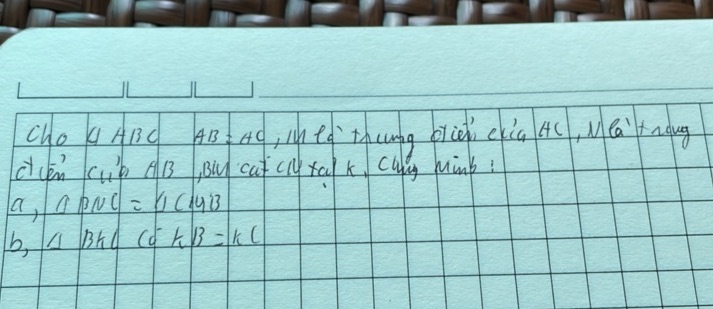 Cho Δ ABC AB = AC, M là trung điểm của AC, N là trung
điểm của AB, BM cắt CN tại K. Chứng minh:
a, Δ BNC = Δ CMB
b, Δ BKC có KB = KC